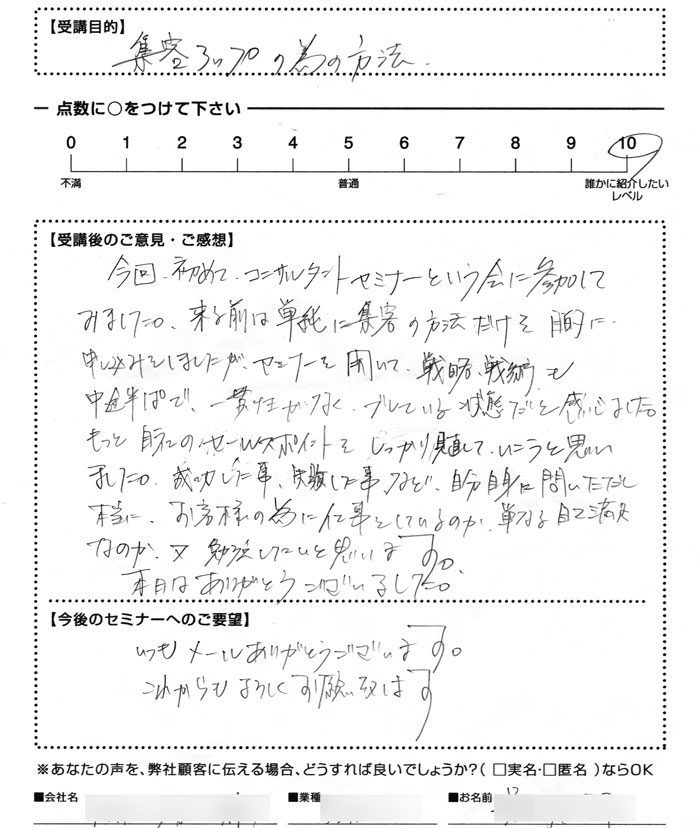 【受講目的】
集客アップの為の方法.
点数に○をつけて下さい
0 1 2 3 4 5 6 7 8 9 10
不満 普通 誰かに紹介したいレベル
【受講後のご意見・ご感想】
今回、初めて、コンサルタントセミナーという会に参加して
みました。来る前は単純に集客の方法だけを目的に
申込みをしましたが、セミナーを聞いて、戦略、戦術も
中途半ぱで、一貫性がなく、ブレている状態だと感じました。
もっと自己のセールスポイントをしっかり見直していこうと思い
ました。成功した事、失敗した事など、自分自身に問いただし
本当に、お客様の為に仕事をしているのか、単なる自己満足
なのか、又勉強したいと思います。
本日はありがとうございました。
【今後のセミナーへのご要望】
いつもメールありがとうございます。
これからもよろしくお願い致します
※あなたの声を、弊社顧客に伝える場合、どうすれば良いでしょうか?( □実名・□匿名 )ならOK
■会社名 ■業種 ■お名前